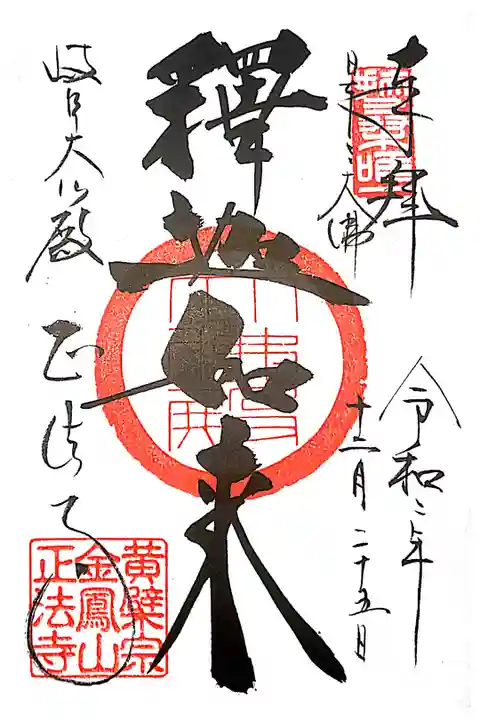 奉拝
日本三大佛
令和二年
十二月二十五日
釋迦如来
岐阜大仏殿 正法寺
黄檗宗
金鳳山
正法寺